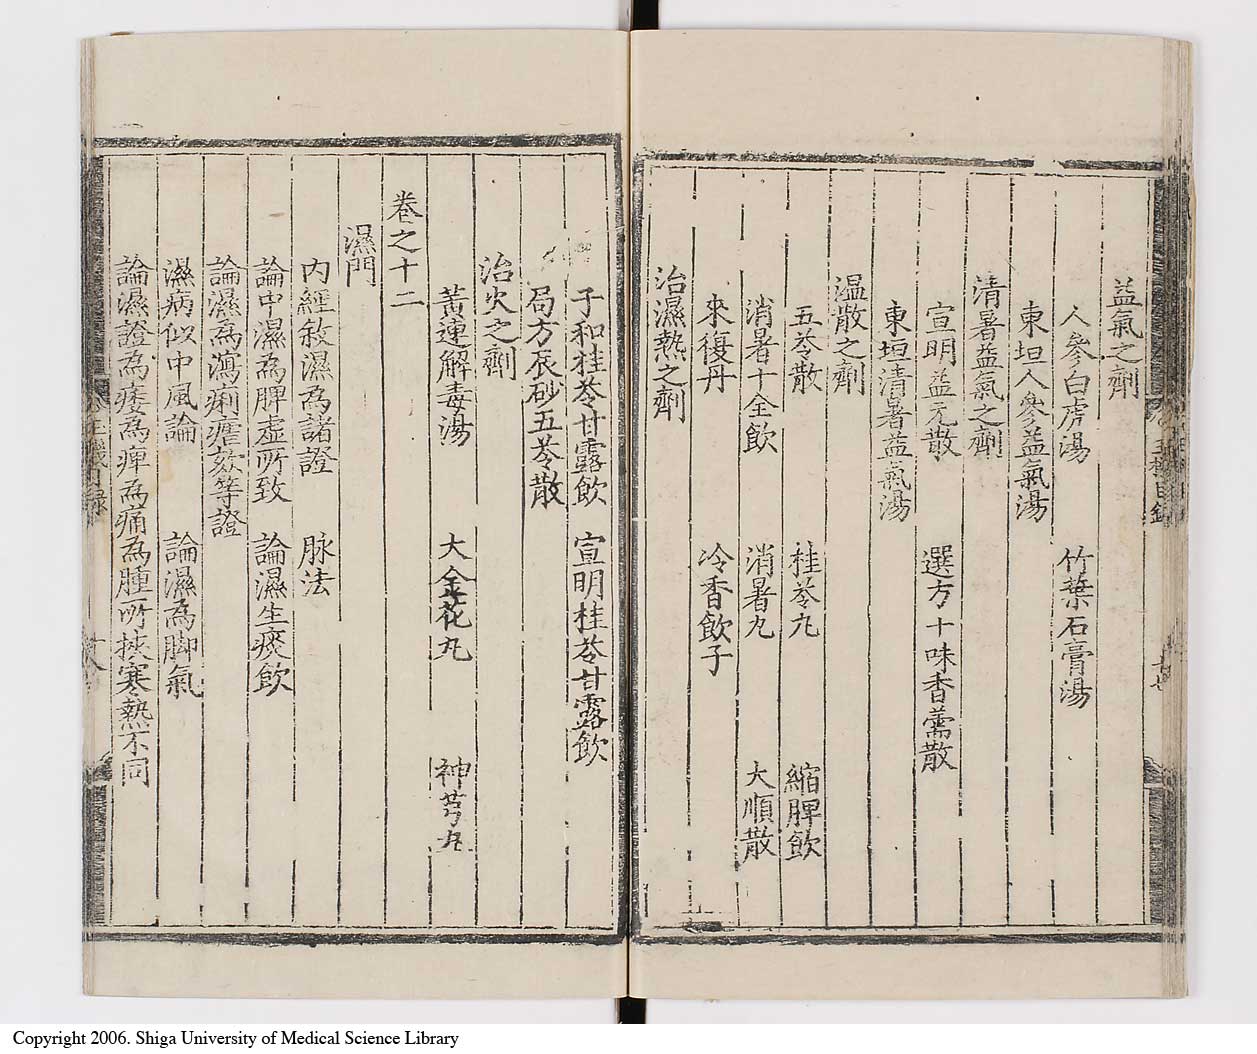 益氣之劑
人參白虎湯 竹葉石膏湯
東垣人參益氣湯
清暑益氣之劑
宣明益元散 選方十味香薷散
東垣清暑益氣湯
温散之劑
五苓散 桂苓丸 縮脾飲
消暑十全飲 消暑丸 大順散
來復丹 冷香飲子
治濕熱之劑
子和桂苓甘露飲 宣明桂苓甘露飲
局方辰砂五苓散
治火之劑
黃連解毒湯 大金花丸 神芎丸
卷之十二
濕門
內經敘濕為諸證 脉法
論中濕為脾虛所致 論濕生痰飲
論濕為瀉痢瘧欬等證
濕病似中風論 論濕為脚氣
論濕證為痿為痺為痛為腫所挾寒熱不同
Copyright 2006. Shiga University of Medical Science Library